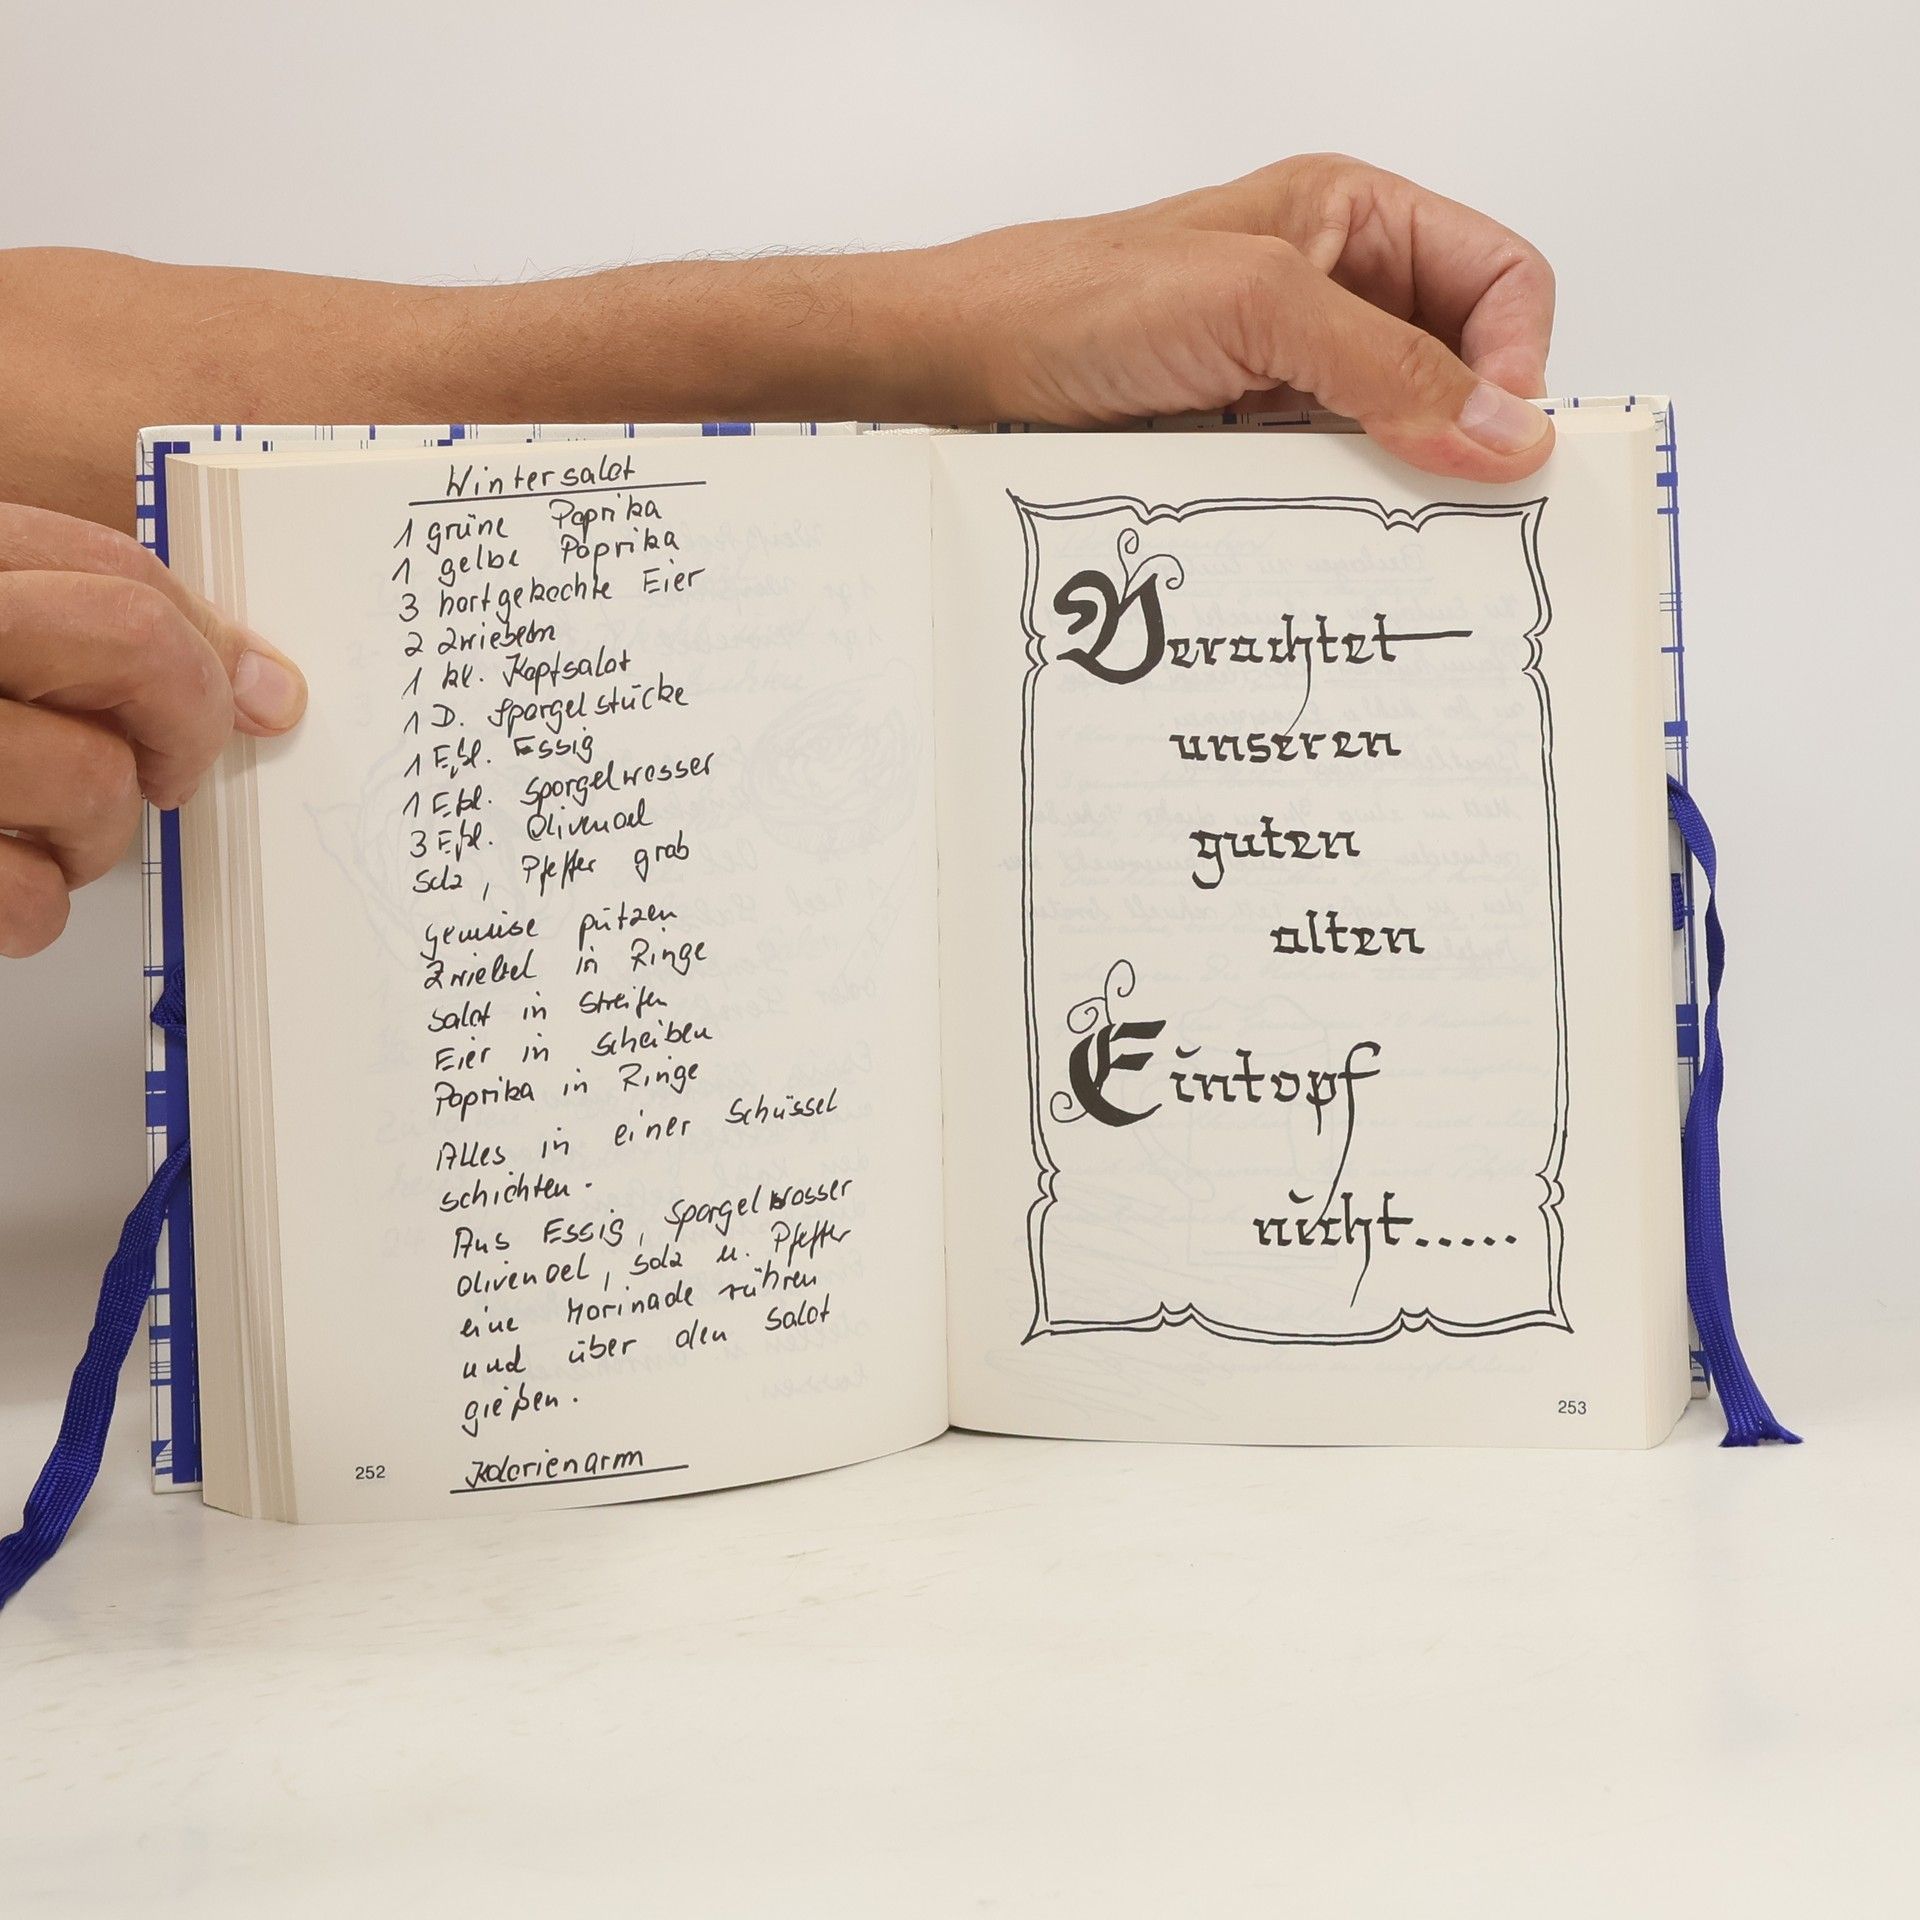 Wintersalat
1 grüne Paprika
1 gelbe Paprika
3 hartgekochte Eier
2 Zwiebeln
1 kl. Kopfsalat
1 D. Spargelstücke
1 Eßl. Essig
1 Eßl. Spargelwasser
3 Eßl. Olivenoel
Salz, Pfeffer grob
Gemüse putzen
Zwiebel in Ringe
Salat in Streifen
Eier in Scheiben
Paprika in Ringe
Alles in einer Schüssel
schichten.
Aus Essig, Spargelwasser
Olivenoel, Salz u. Pfeffer
eine Marinade rühren
und über den Salat
gießen.
Kalorienarm
252
Verachtet
unseren
guten
alten
Eintopf
nicht.....
253